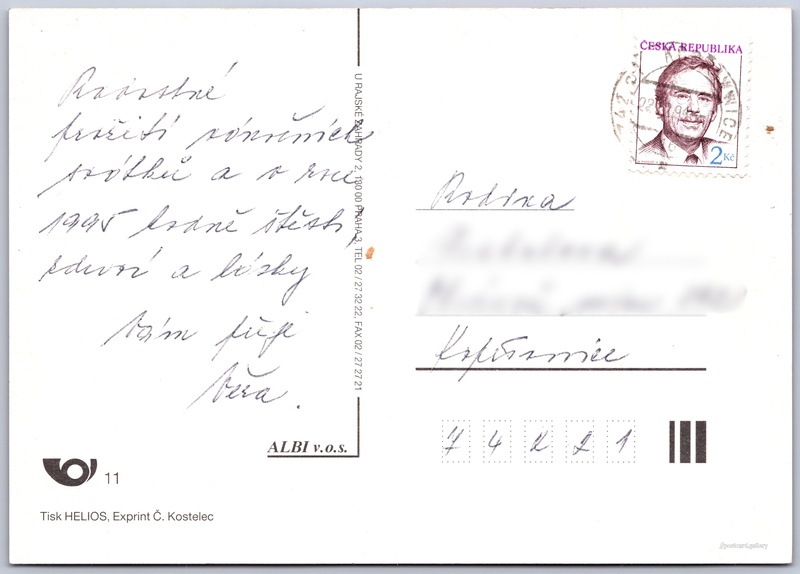 Radostné
prožití vánočních
svátků a v roce
1995 hodně štěstí,
zdraví a lásky
Vám přeje
Věra.
U RAJSKÉ ZAHRADY 2, 130 00 PRAHA 3, TEL 02 / 27 32 22, FAX 02 / 27 27 21
ALBI v.o.s.
11
Tisk HELIOS, Exprint Č. Kostelec
ČESKÁ REPUBLIKA
2 Kč
Rodina
Kopřivnice
7 4 2 2 1
//postcard.gallery